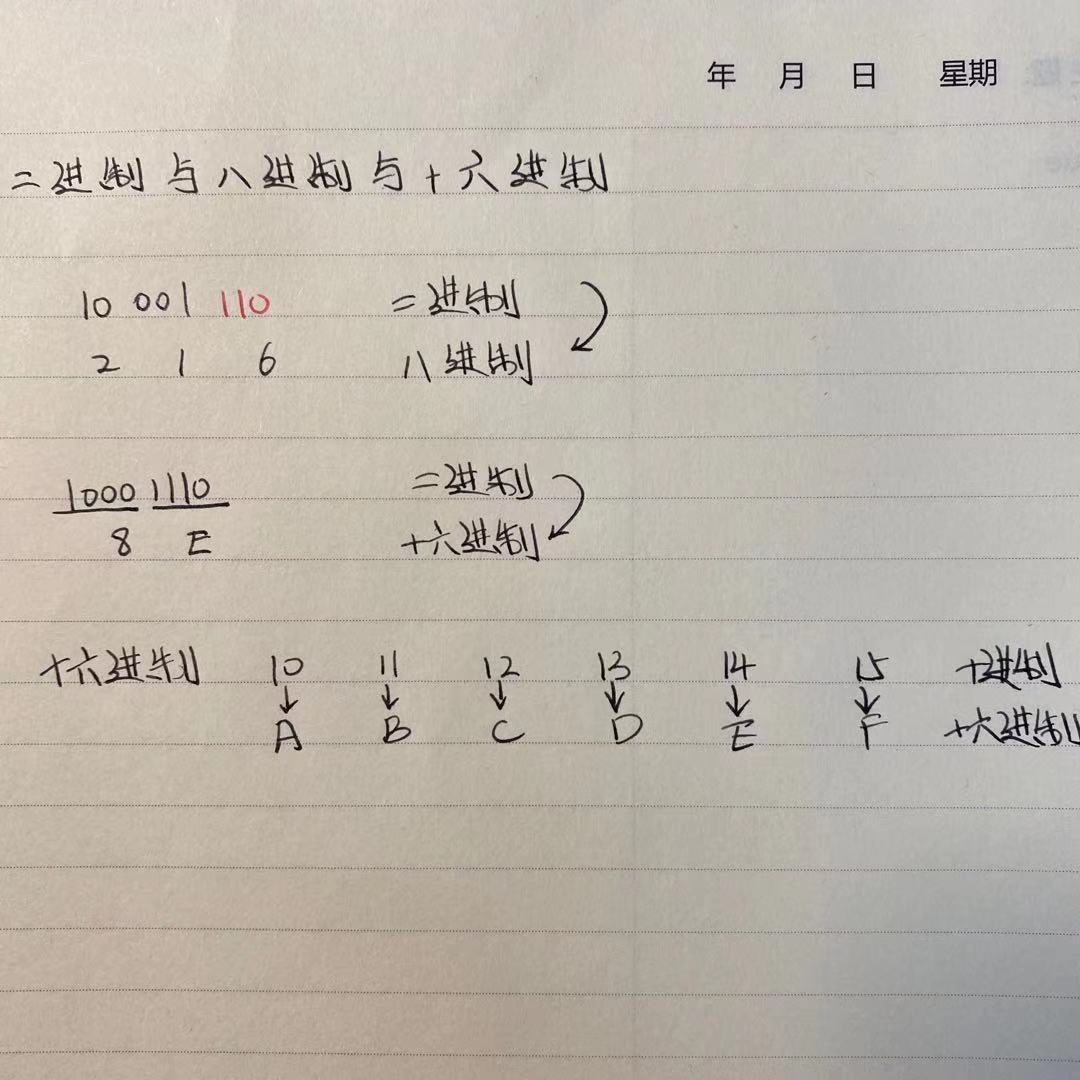 年 月 日 星期
二进制与八进制与十六进制
10 001 110 二进制
2 1 6 八进制
1000 1110 二进制
8 E 十六进制
十六进制 10 11 12 13 14 15 十进制
A B C D E F 十六进制